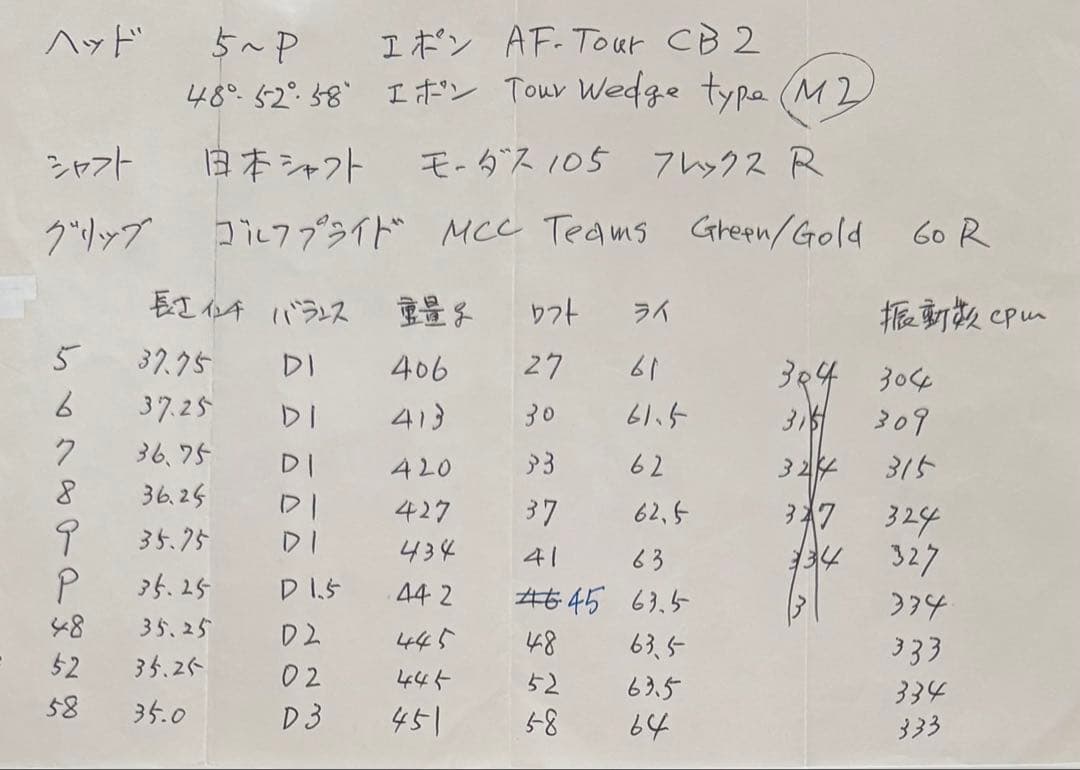 ヘッド 5～P エポン AF-Tour CB2
48°・52°・58° エポン Tour Wedge type M2
シャフト 日本シャフト モーダス105 フレックス R
グリップ ゴルフプライド MCC Teams Green/Gold 60R
長さインチ バランス 重量g ロフト ライ 振動数cpm
5 37.75 D1 406 27 61 304 304
6 37.25 D1 413 30 61.5 315 309
7 36.75 D1 420 33 62 324 315
8 36.25 D1 427 37 62.5 327 324
9 35.75 D1 434 41 63 334 327
P 35.25 D1.5 442 46 45 63.5 3 334
48 35.25 D2 445 48 63.5 333
52 35.25 D2 445 52 63.5 334
58 35.0 D3 451 58 64 333